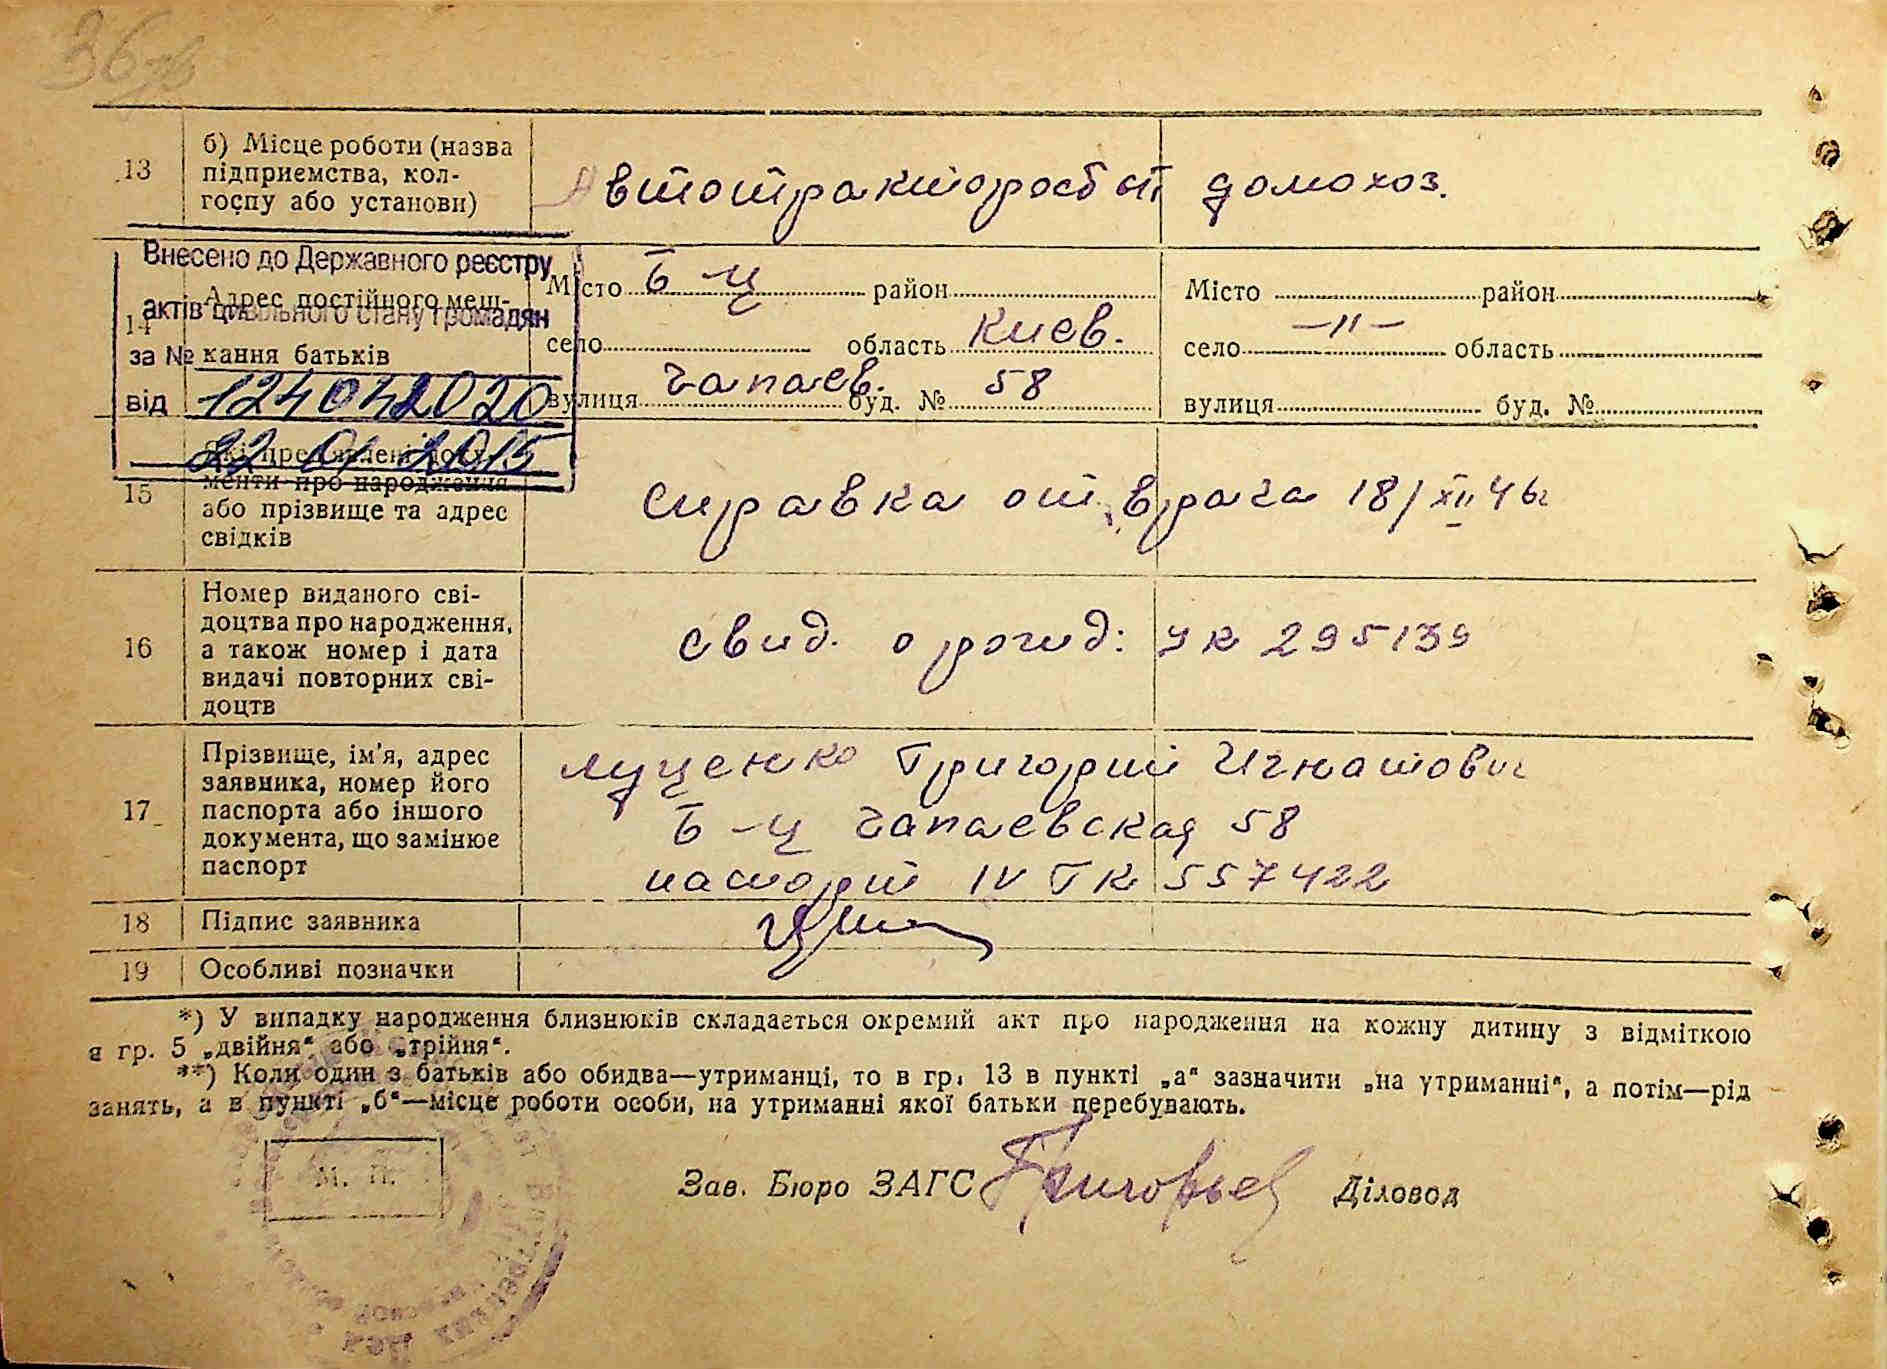 36
13
б) Місце роботи (назва
підприємства, кол-
госпу або установи)
Автотрактросбыт домохоз.
Внесено до Державного реєстру
актів цивільного стану громадян
за №
від
1240432020
22 01 2015
14
Адрес постійного меш-
кання батьків
Місто Б-Ц район
село область Киев.
вулиця Чапаев. буд. № 58
Місто район
—〃—
село область
вулиця буд. №
15
Які пред'явлені доку-
менти про народження
або прізвище та адрес
свідків
Справка от врача 18/XII 46г
16
Номер виданого сві-
доцтва про народження,
а також номер і дата
видачі повторних сві-
доцтв
Свид. о рожд: УК 295139
17
Прізвище, ім'я, адрес
заявника, номер його
паспорта або іншого
документа, що замінює
паспорт
Луценко Григорий Игнатович
Б-Ц Чапаевская 58
паспорт IV ТК 557422
18 Підпис заявника
19 Особливі позначки
*) У випадку народження близнюків складається окремий акт про народження на кожну дитину з відміткою
в гр. 5 „двійня“ або „трійня“.
**) Коли один з батьків або обидва—утриманці, то в гр. 13 в пункті „а“ зазначити „на утриманні“, а потім—рід
занять, а в пункті „б“—місце роботи особи, на утриманні якої батьки перебувають.
М. П.
Зав. Бюро ЗАГС Григорьев Діловод